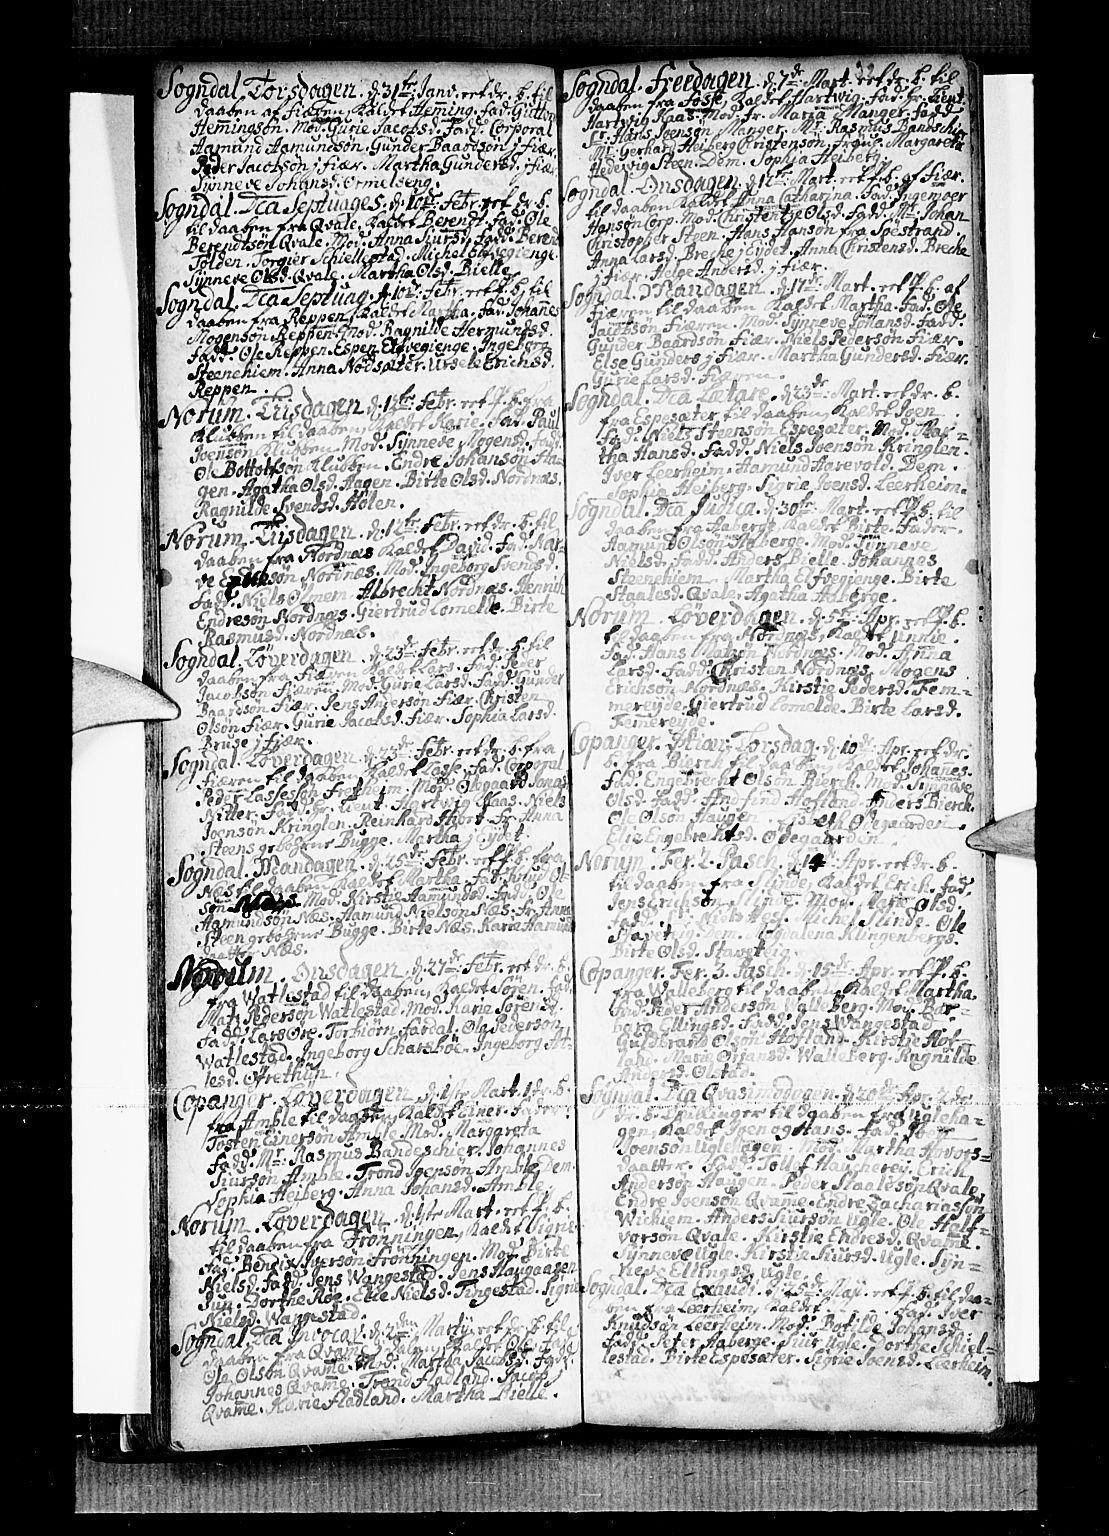 Sogndal. Torsdagen. d. 31te Janv. ert dr. b. til
daaben af Fiæren, Kaldet Hemming. Fad. Guttorm
Hemingsön. Mod. Gurie Jacobsd. Fadd. Corporal
Aamund Aamundsön. Gunder Baardsön j fiær.
Peder Jacobsön j fiær. Martha Gundersd. j fiær.
Synneve Johansd. Ormelseng.
Sogndal. Dca Septuages. d. 10de Febr. ert dr. b.
til daaben fra Qvale. Kaldet Berendt. Fad. Ole
Berendtsön Qvale. Mod. Anna Siursd. Fadd. Berend
Tylden. Torgier Schiellestad. Michel Elvegienge.
Synneve Olsd. Qvale. Martha Olsd. Bielle.
Sogndal. Dca Septuag. d. 10de Febr. ert p. b. til
daaben fra Reppen, Kaldet Martha. Fad. Johannes
Mogensön Reppen. Mod. Ragnilde Hermundsd.
Fadd. Ole Reppen. Espen Elvegienge. Ingeborg
Steenehiem. Anna Nodsæter. Ursele Erichsd.
Reppen.
Norum. Tiisdagen. d. 12te Febr. ert p. b. fra
Klubben til daaben, Kaldet Karie. Fad. Paul
Joensön Klubben. Mod. Synneve Mogensd. Fadd.
Ole Bottolfsön Klubben. Endre Johansön Ha-
gen. Agatha Olsd. Hagen. Birte Olsd. Nordnæs.
Ragnilde Svendsd. Holen.
Norum. Tiisdagen. d. 12te Febr. ert dr. b. til
daaben fra Nordnæs Kaldet David. Fad. Nar-
ve Erichsön Nordnæs. Mod. Ingeborg Svends.
Fadd. Niels Olmem. Albrecht Nordnæs. Henrich
Endresön Nordnæs. Giertrud Lomelde. Birte
Rasmusd. Nordnæs.
Sogndal. Löverdagen. d. 23de Febr. ert dr. b. til
daaben fra Fiæren Kaldet Lars. Fad. Peder
Jacobsön Fiæren. Mod. Gurie Larsd. Fadd. Gunder
Baardsön Fiær. Jens Andersön Fiær. Christen
Olsön Fiær. Gurie Jacobsd. Fiær. Sophia Larsd.
Bruse j fiær.
Sogndal. Löverdagen. d. 23de Febr. ert dr. b. fra
Fiæren til daaben, Kaldet Lasse. Fad. Corporal
Peder Lassesön Fretheim. Mod. Olegaard Jonas
Ritter. Fadd. Hr. Leut. Hartvig Kaas. Niels
Joensön Kringlen. Reinhard Hiort. Fr. Anna
Steens gebohrne Bugge. Martha j Eydet.
Sogndal. Mandagen. d. 25de Febr. ert p. b. fra
Næs til daaben, Kaldet Martha. Fad. Ol-
sön Næss. Mod. Kirstie Aamundsd. Fadd. Ole
Aamundsön Næs. Aamund Nielsön Næs. Fr. Anna
Steen gebohrne Bugge. Birte Næs. Karie Aamund
daatter Næs.
Norum. Onsdagen. d. 27de Febr. ert dr. b.
fra Watlestad til daaben, Kaldet Sören. Fad.
Mats Pedersön Watlestad. Mod. Karie Sörensd.
Fadd. Lars Öre. Torbiörn Fardal. Ole Pedersön
Watlestad. Ingeborg Scharsböe. Ingeborg At-
lesd. Öfrethun.
Copanger. Löverdagen. d. 1ste Mart. ert dr. b.
fra Amble til daaben, Kaldet Einer. Fad.
Tosten Einersön Amble. Mod. Margareta
Fadd. Mr. Rasmus Bandeschier. Johannes
Siursön Amble. Trond Joensön Amble. Dem.
Sophia Heiberg. Anna Johansd. Amble.
Norum. Löverdagen. d. 1ste Mart. ert p. b.
til daaben fra Frönningen, Kaldet Signe.
Fad. Bendix Iversön Frönningen. Mod. Birte
Nielsd. Fadd. Jens Wangestad. Jens Haugaagen
Sun. Dorthe Röe. Else Nielsd. Tingestad. Signe
Nielsd. Wangestad.
Sogndal. Dca Invocav. d. 2den Martij ert dr. b. til
daaben fra Qvamme j dalen, Kaldet Ole. Fad.
Ole Olsön Qvamme. Mod. Martha Jacobsd. Fadd.
Johannes Qvamme. Trond Fladland. Jacob
Qvamme. Karie Fladland. Martha Bielle.
Sogndal. Freedagen. d. 7de Mart. ert dr. b. til
daaben fra Foss, Kaldet Hartvig. Fad. Hr. Leut.
Hartvih Kaas. Mod. Fr. Maria Manger. Fadd.
Sr. Hans Joensön Manger. Mr. Rasmus Bandschier
Mr. Gerhard Heiberg Christensön. Fr. Margareta
Hedewig Steen. Dem. Sophia Heiberg.
Sogndal. Onsdagen. d. 12te Mart. ert p. b. af Fiær.
til daaben Kaldet Anna Catharina. Fad. Ingemoer
Hansön Corp. Mod. Christentze Olsd. Fadd. Mr. Johan
Christopher Steen. Hans Hansön fra Spestrand.
Anna Larsd. Breche j Eydet. Anna Christensd. Breche
j fiær. Helge Andersd. j fiær.
Sogndal. Mandagen. d. 17de Mart. ert p. b. af
fiæren til daaben Kaldet Martha. Fad. Ole
Jacobsön Fiæren. Mod. Synneve Johansd. Fadd.
Gunder Baardsön Fiær. Niels Pedersön Fiær.
Else Gunders j fiær. Martha Gundersd. Fiær.
Gurie Larsd. Fiæren.
Sogndal. Dca Lætare. d. 23de Mart. ert dr. b.
fra Espesæter til daaben, Kaldet Joen
Fad. Niels Steensön Espesæter. Mod. Mar-
tha Hansd. Fadd. Niels Joensön Kringlen.
Iver Leerheim. Aamund Harevold. Dem.
Sophia Heiberg. Sigrie Joensd. Leerheim.
Sogndal. Dca Judica. d. 30te Mart. ert p. b. til
daaben fra Aaberge. Kaldet Birte. Fader
Aamund Olsön Aaberge. Mod. Synneve
Nielsd. Fadd. Anders Bielle. Johannes
Steenehiem. Martha Elfvegienge. Birte
Staalesd. Qvale. Agatha Aaberge.
Norum. Löverdagen. d. 5te Apr. ert p. b.
til daaben fra Nordnæs, Kaldet Unnie.
Fad. Hans Matsön Nordnæs. Mod. Anna
Larsd. Fadd. Christen Nordnæs. Mogens
Erichsön Nordnæs. Kirstie Pedersd. Fem-
mereyde. Giertrud Lomelde. Birte Larsd.
Femmereyde.
Copanger. Skiær Torsdag. d. 10de Apr. ert dr.
b. fra Bierch til daaben, Kaldet Johannes.
Fad. Engebrecht Olsön Bierch. Mod. Synneve
Olsd. Fadd. Andfind Hofland. Anders Bierch.
Ole Olsön Haugen. Lisbeth Ödegaarden.
Eliz Engebrechtsd. Ödegaarden.
Norum. Fer. 2. Pasch. d. 14 Apr. ert dr. b.
til daaben fra Slinde, Kaldet Erich. Fad.
Jens Erichsön Slinde. Mod. Marie Olsd.
Fadd. Sr. Niels Hess. Michel Slinde. Ole
Staveteig. Dem. Magdalena Klingenbergs.
Birte Olsd. Staveteig.
Copanger. Fer. 3. Pasch. d. 15de Apr. ert p. b.
fra Walleberg til daaben, Kaldet Martha.
Fad. Peder Andersön Walleberg. Mod. Bar-
bara Ellingsd. Fadd. Jens Wangestad.
Guldbrand Olsön Hofland. Kirstie Hof-
land. Marie Örjansd. Walleberg. Ragnilde
Andersd. Olstad.
Sogndal. Dca Qvasimodogen. d. 20de Apr. 2de
dr. b. Tvillinger til daaben fra Ugleha-
gen, Kaldet Joen og Hans. Fad.
Joensön Uglehagen. Mod. Martha Havors-
daatter. Fadd. Tollef Haucheren. Erich
Andersön Haugen. Peder Staalesön Qvale.
Endre Joensön Qvamme. Endre Zachariasön
Wichiem. Anders Siursön Ugle. Ole Hall-
vorsön Qvale. Kirstie Endresd. Qvamme.
Synneve Ugle. Kirstie Siursd. Ugle. Syn-
neve Ellingsd. Ugle.
Sogndal. Dca Exaudi. d. 25de Maij. ert p. b. til daa-
ben fra Leerheim, Kaldet . . . . Fad. Iver
Knudsön Leerheim. Mod. Botilde Johansd.
Fadd. Peter Aaberge. Siur Ugle. Dorthe Schiel-
lestad. Birte Espesæter. Sigrie Joensd. Leerheim.